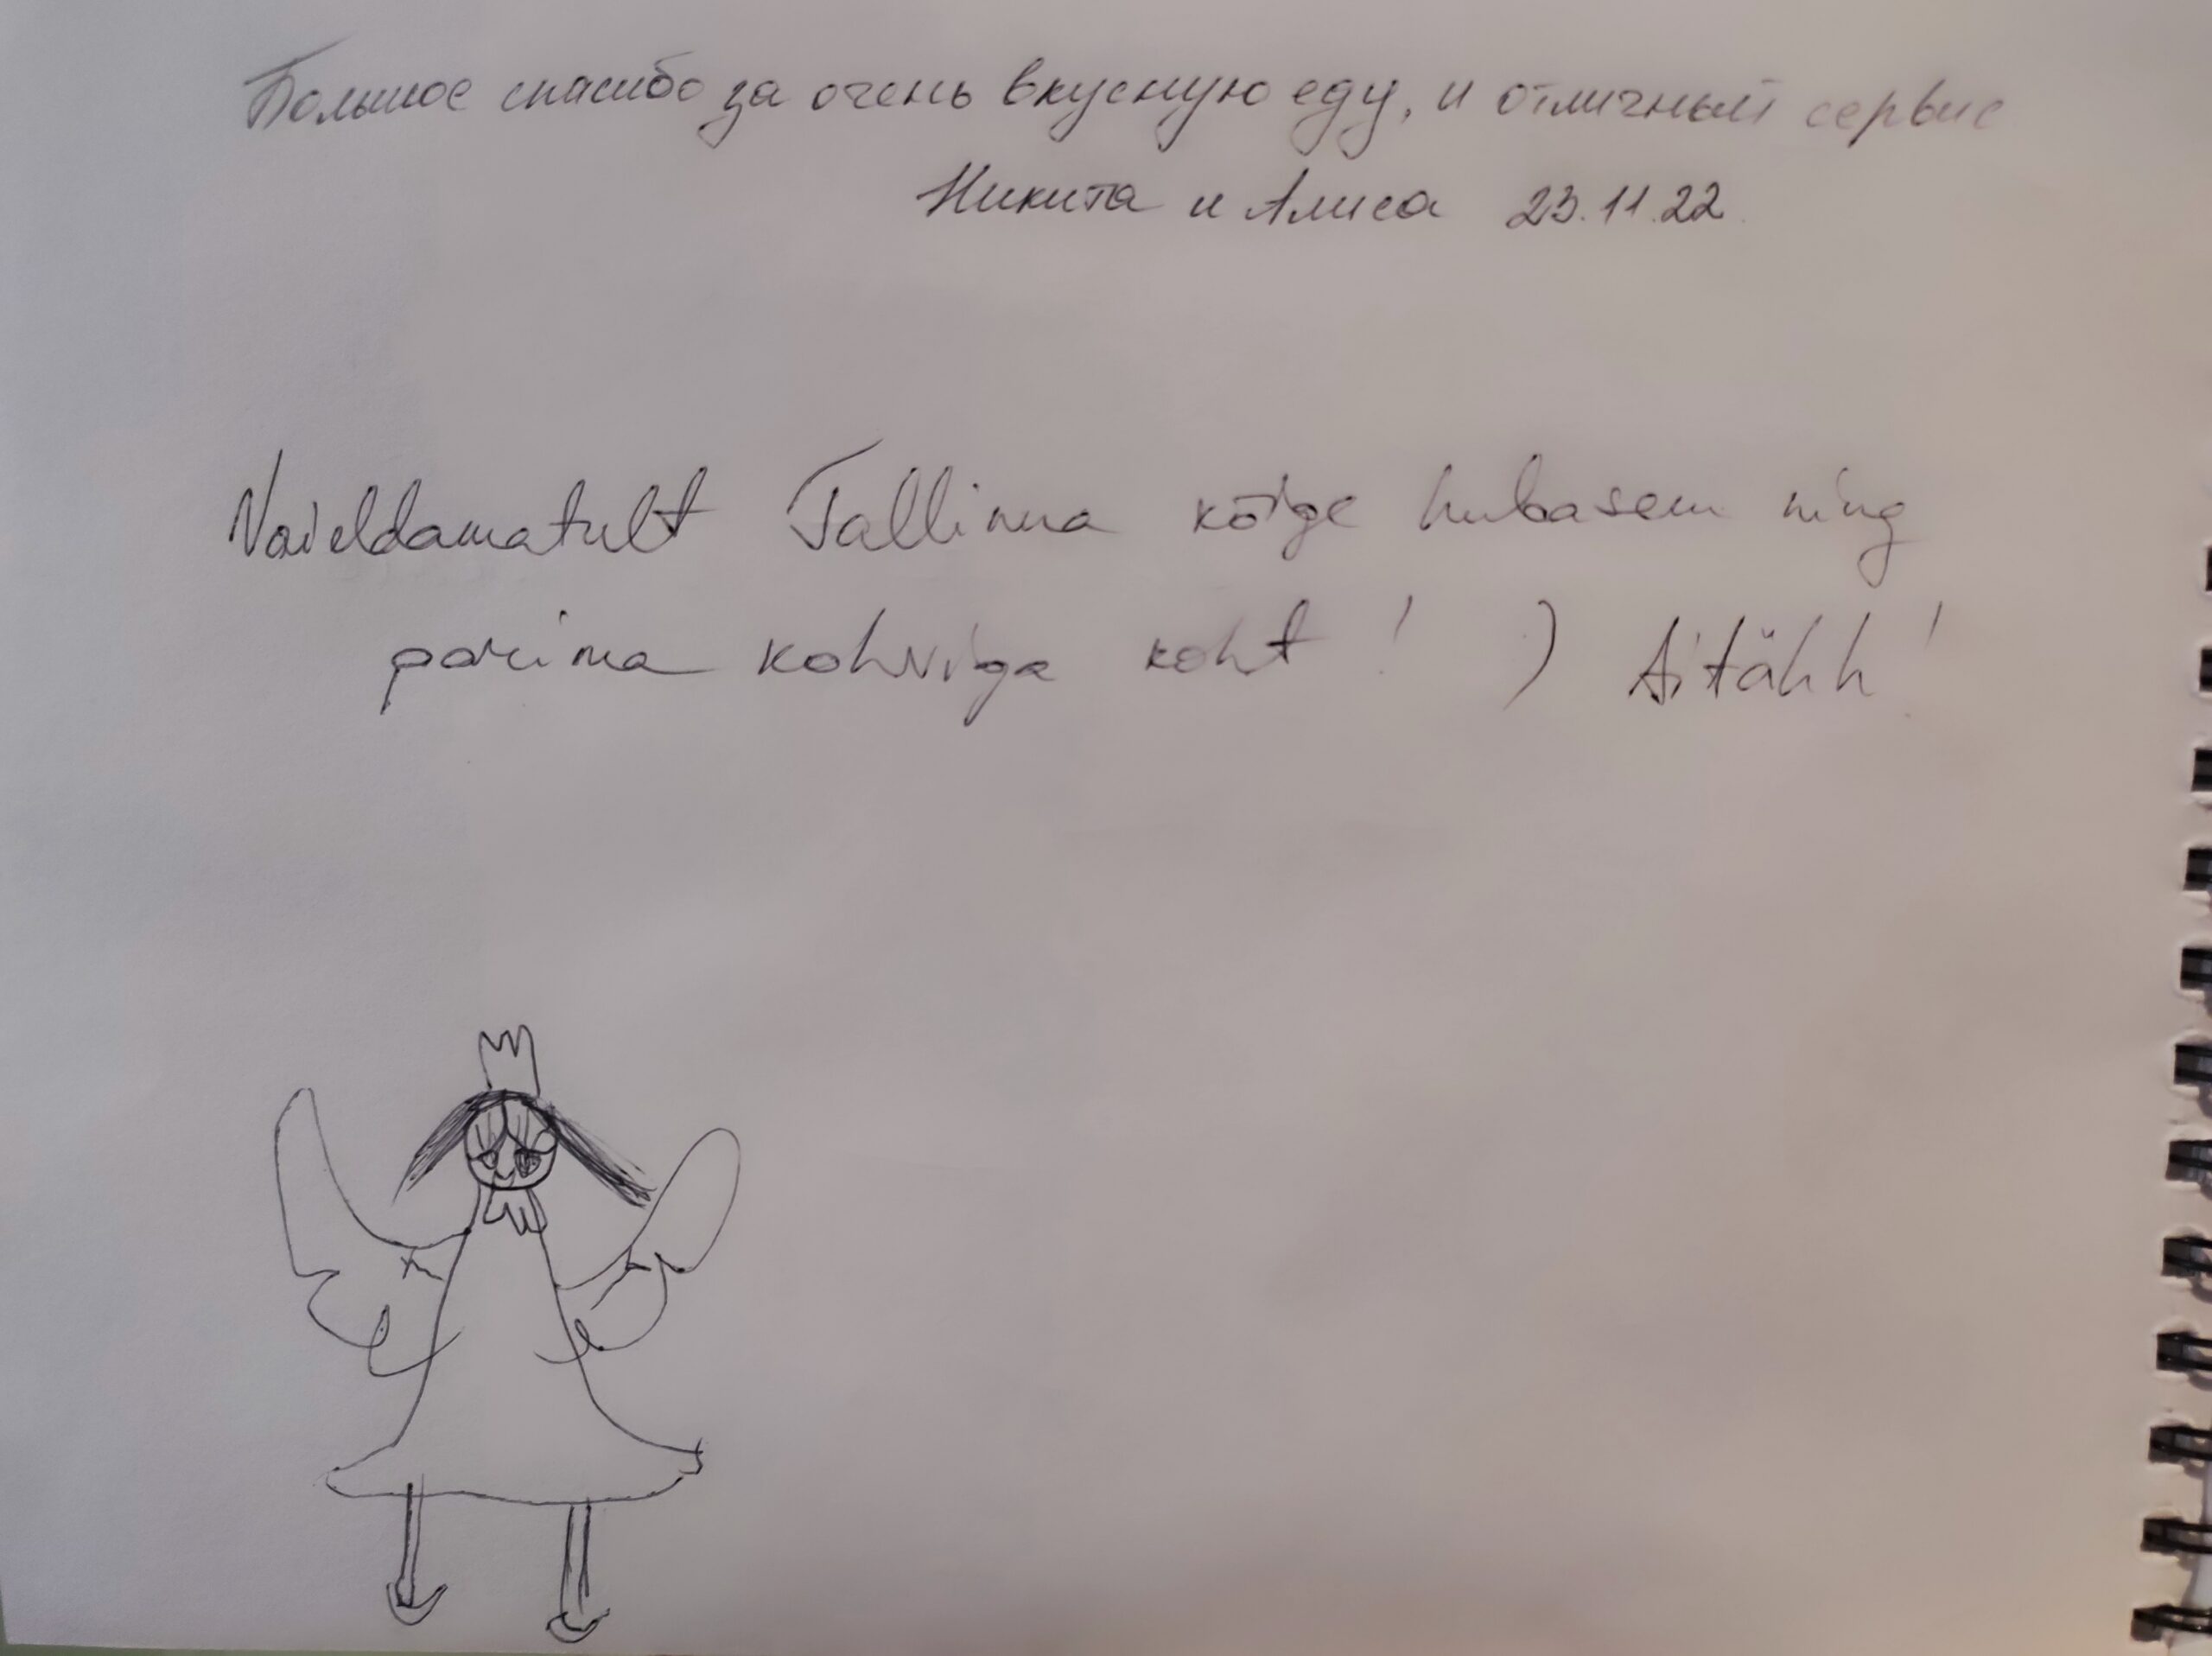 Большое спасибо за очень вкусную еду, и отличный сервис
Никита и Алиса 23.11.22
Vaieldamatult Tallinna kõige hubasem ning
parima kohviga koht! ) Aitähh!